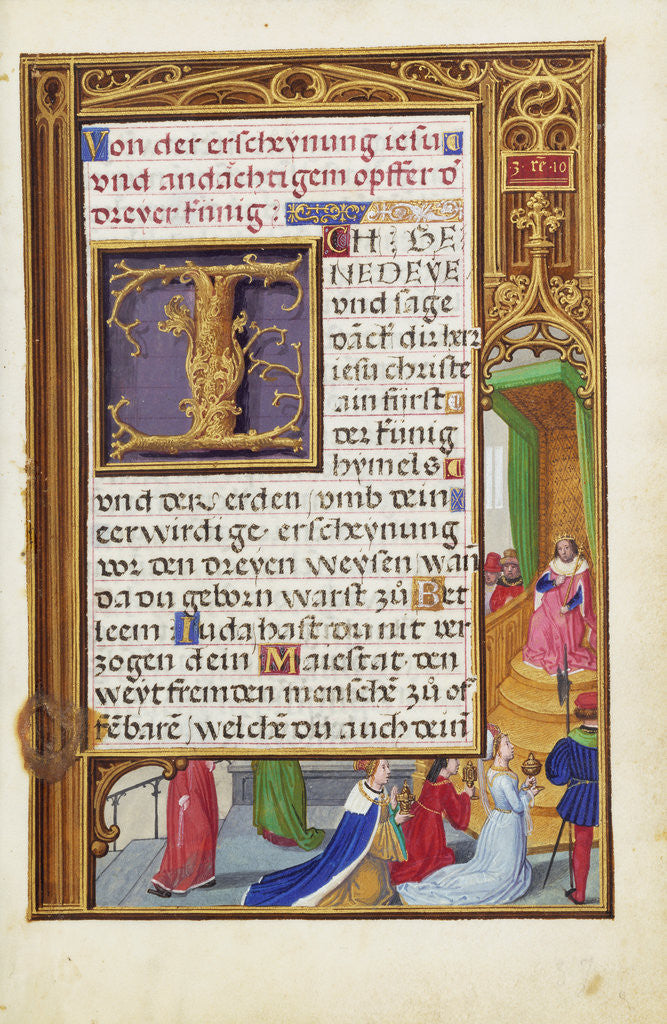 Von der erscheynung iesu
vnd andächtigem opffer d'
dreyer künig:
3·re·10
ICH: GE
NEDEYE
vnd sage
dāck dir herr
iesu christe
ain fürst
der künig
hymels
vnd der erden / vmb dein
eerwirdige erscheynung
vor den dreyen weysen / wañ
da du geborn warst zů Bet
leem Iuda hast du nit ver
zogen dein Maiestat den
weyt fremden menschē zů of
fēbarē / welche du auch dein